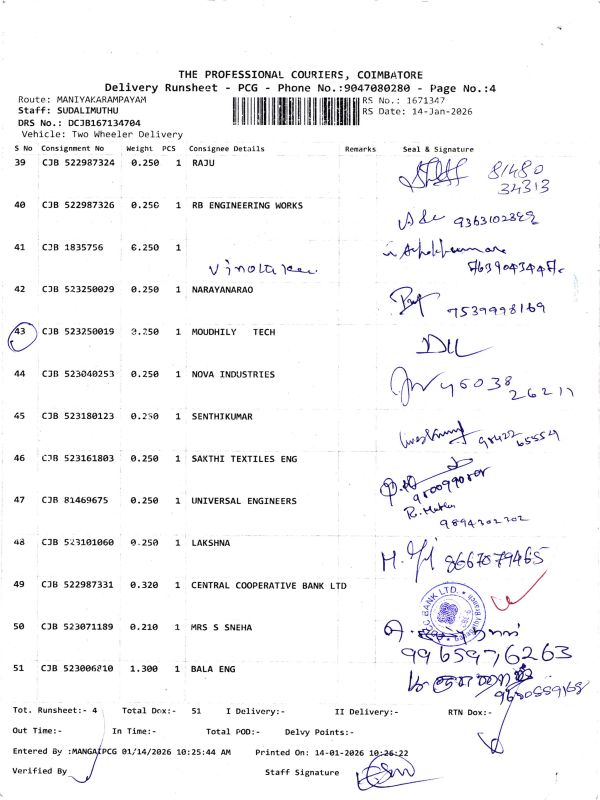 THE PROFESSIONAL COURIERS, COIMBATORE
Delivery Runsheet - PCG - Phone No.:9047080280 - Page No.:4
Route: MANIYAKARAMPAYAM RS No.: 1671347
Staff: SUDALIMUTHU RS Date: 14-Jan-2026
DRS No.: DCJB167134704
Vehicle: Two Wheeler Delivery
S No Consignment No Weight PCS Consignee Details Remarks Seal & Signature
39 CJB 522987324 0.250 1 RAJU 81480
34313
40 CJB 522987326 0.250 1 RB ENGINEERING WORKS
41 CJB 1835756 0.250 1
42 CJB 523250029 0.250 1 NARAYANARAO 7539998169
43 CJB 523250019 0.250 1 MOUDHILY TECH
44 CJB 523040253 0.250 1 NOVA INDUSTRIES 95038
26211
45 CJB 523180123 0.250 1 SENTHIKUMAR 98422
65554
46 CJB 523161803 0.250 1 SAKTHI TEXTILES ENG
47 CJB 81469675 0.250 1 UNIVERSAL ENGINEERS
9894202202
48 CJB 523101060 0.250 1 LAKSHNA 8667079465
49 CJB 522987331 0.320 1 CENTRAL COOPERATIVE BANK LTD
BANK LTD.
50 CJB 523071189 0.210 1 MRS S SNEHA
9965976263
51 CJB 523006810 1.300 1 BALA ENG
Tot. Runsheet:- 4 Total Dox:- 51 I Delivery:- II Delivery:- RTN Dox:-
Out Time:- In Time:- Total POD:- Delvy Points:-
Entered By :MANGAIPCG 01/14/2026 10:25:44 AM Printed On: 14-01-2026 10:26:22
Verified By Staff Signature